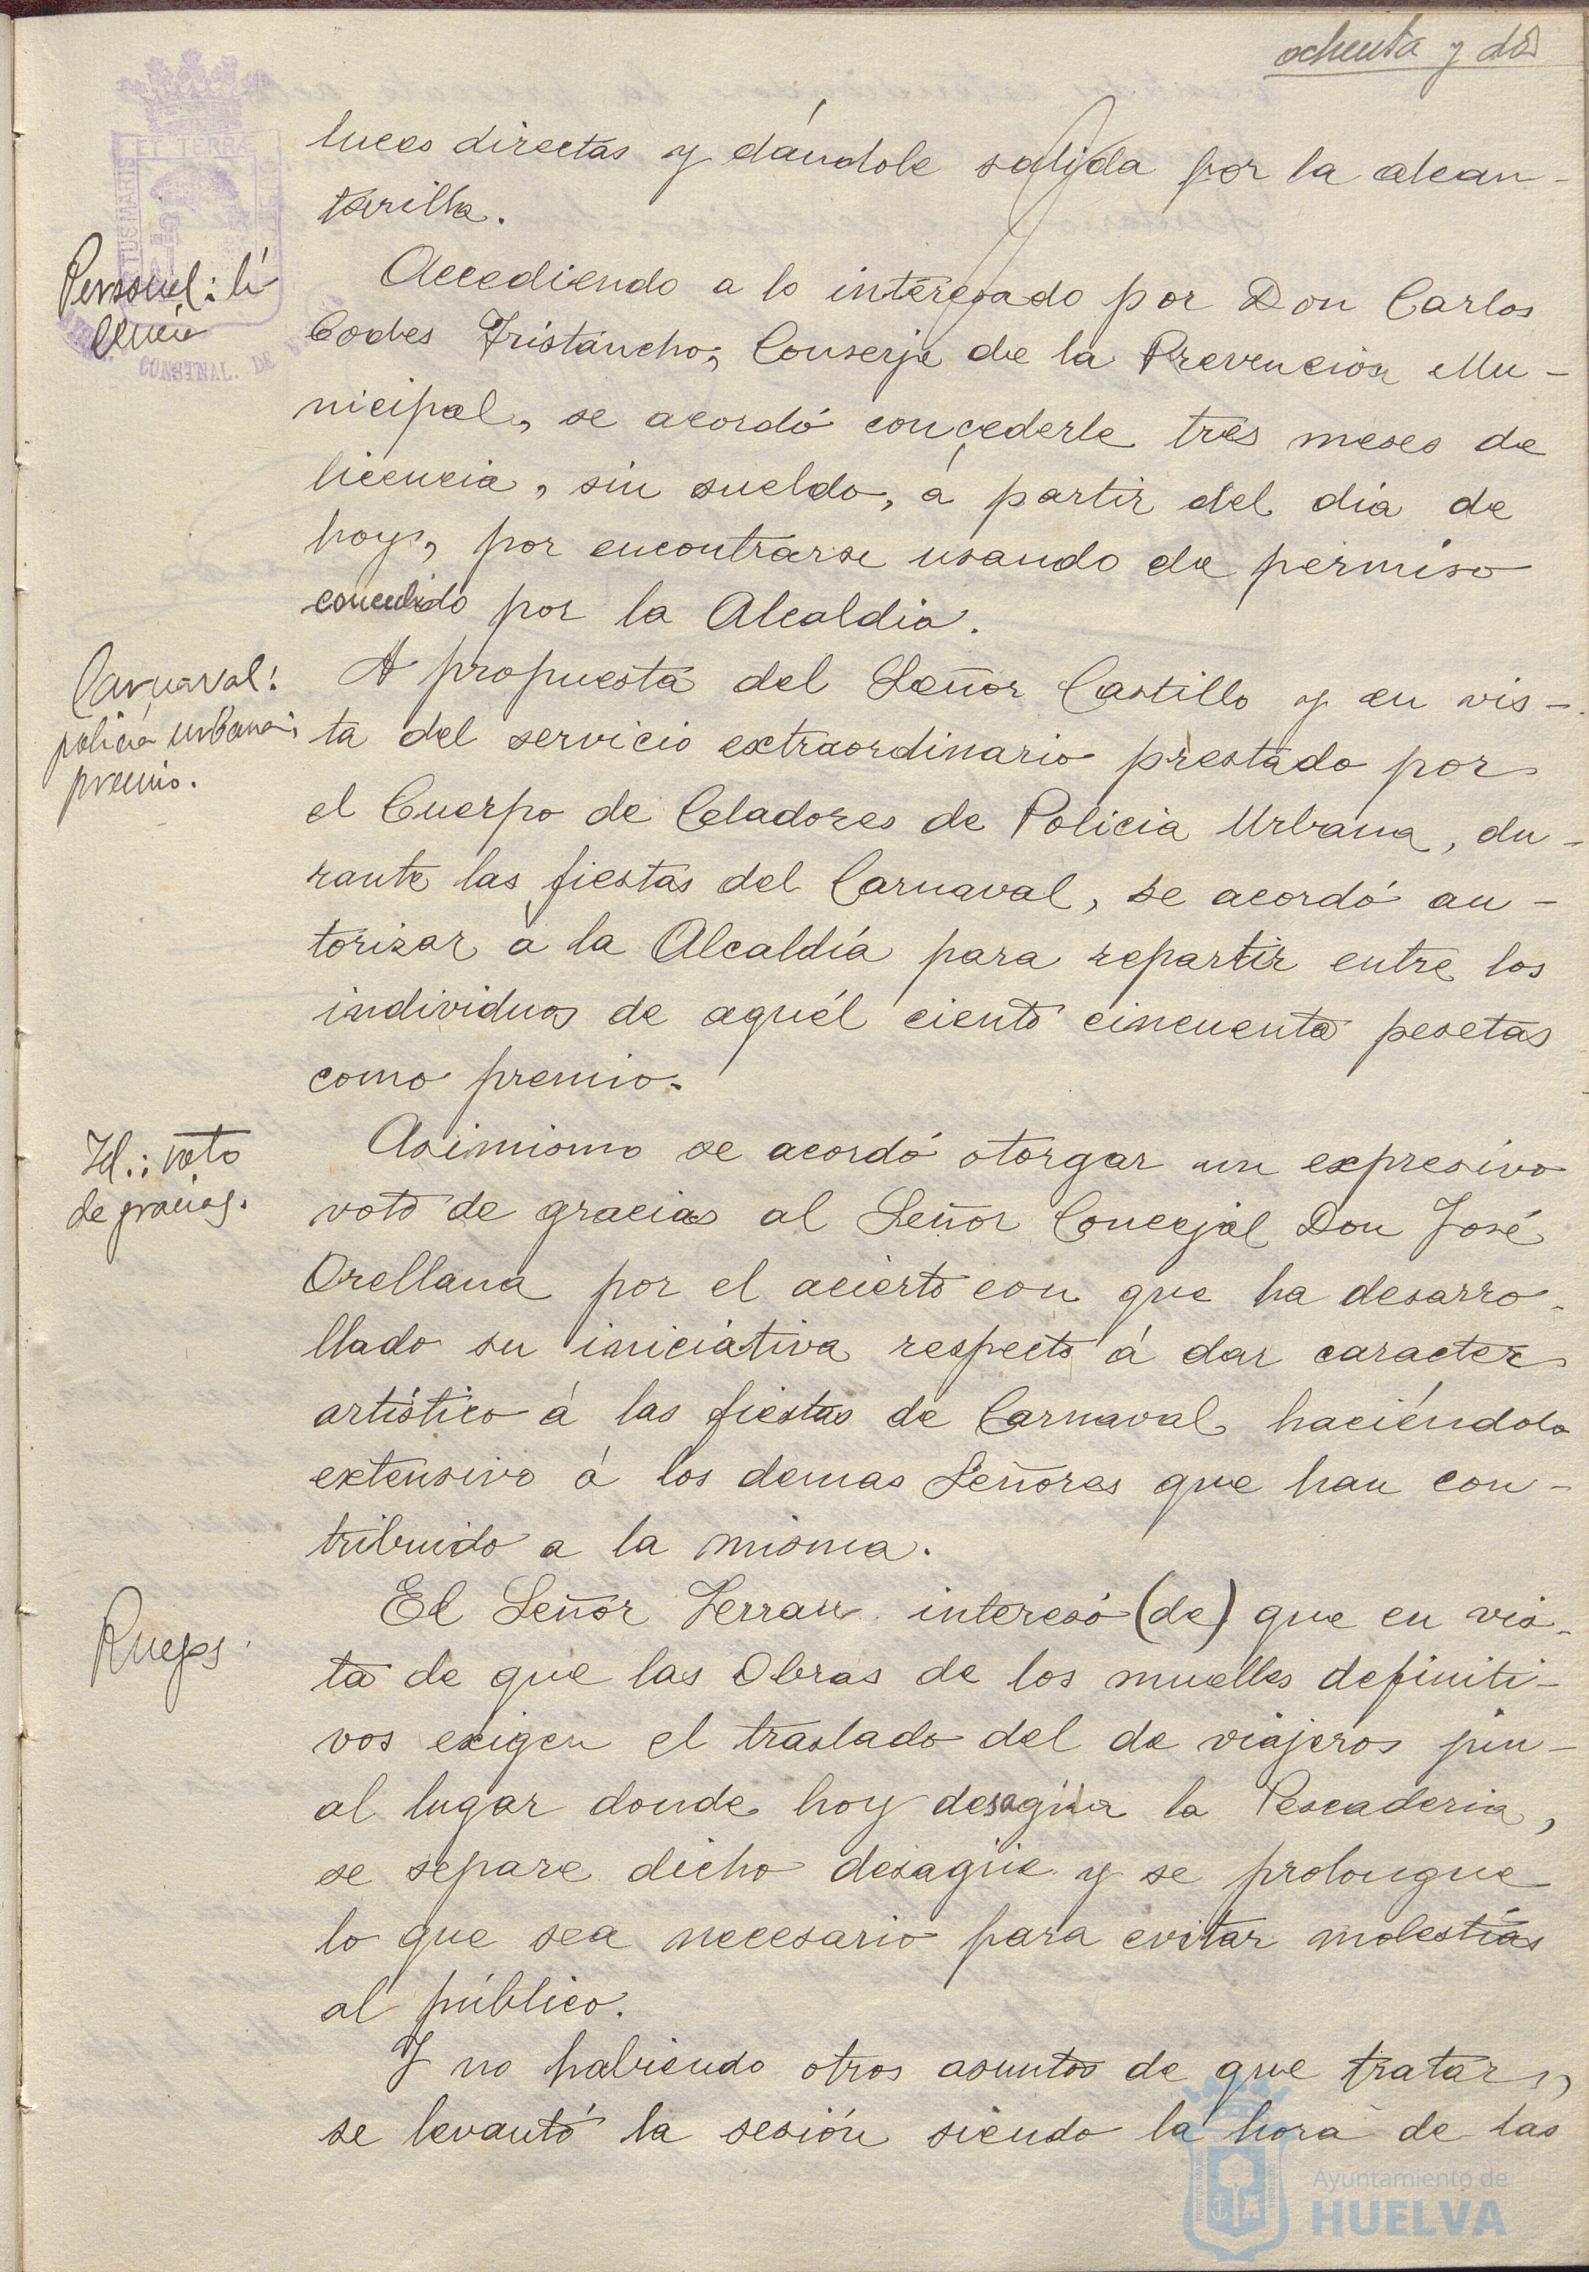 ochenta y dos
luces directas y dándole salida por la alcan-
tarilla.
Personal: li
cencia
Accediendo a lo interesado por Don Carlos
Codes Tristancho, Conserje de la Prevención Mu-
nicipal, se acordó concederle tres meses de
licencia, sin sueldo, á partir del día de
hoy, por encontrarse usando de permiso
concedido por la Alcaldia.
Carnaval:
policia urbana:
premio.
A propuesta del Señor Castillo y en vis-
ta del servicio extraordinario prestado por
el Cuerpo de Celadores de Policia Urbana, du-
rante las fiestas del Carnaval, se acordó au-
torizar á la Alcaldía para repartir entre los
individuos de aquél ciento cincuenta pesetas
como premio.
Id.: voto
de gracias.
Asimismo se acordó otorgar un expresivo
voto de gracias al Señor Concejal Don José
Orellana por el acierto con que ha desarro-
llado su iniciativa respecto á dar caracter
artístico á las fiestas de Carnaval haciéndolo
extensivo á los demas Señores que han con-
tribuido a la misma.
Ruegos
El Señor Terran interesó (de) que en vis-
ta de que las Obras de los muelles definiti-
vos exigen el traslado del de viajeros jun-
al lugar donde hoy desagüa la Pescaderia,
se separe dicho desagüe y se prolongue
lo que sea necesario para evitar molestias
al público.
Y no habiendo otros asuntos de que tratar,
se levantó la sesión siendo la hora de las
Ayuntamiento de
HUELVA